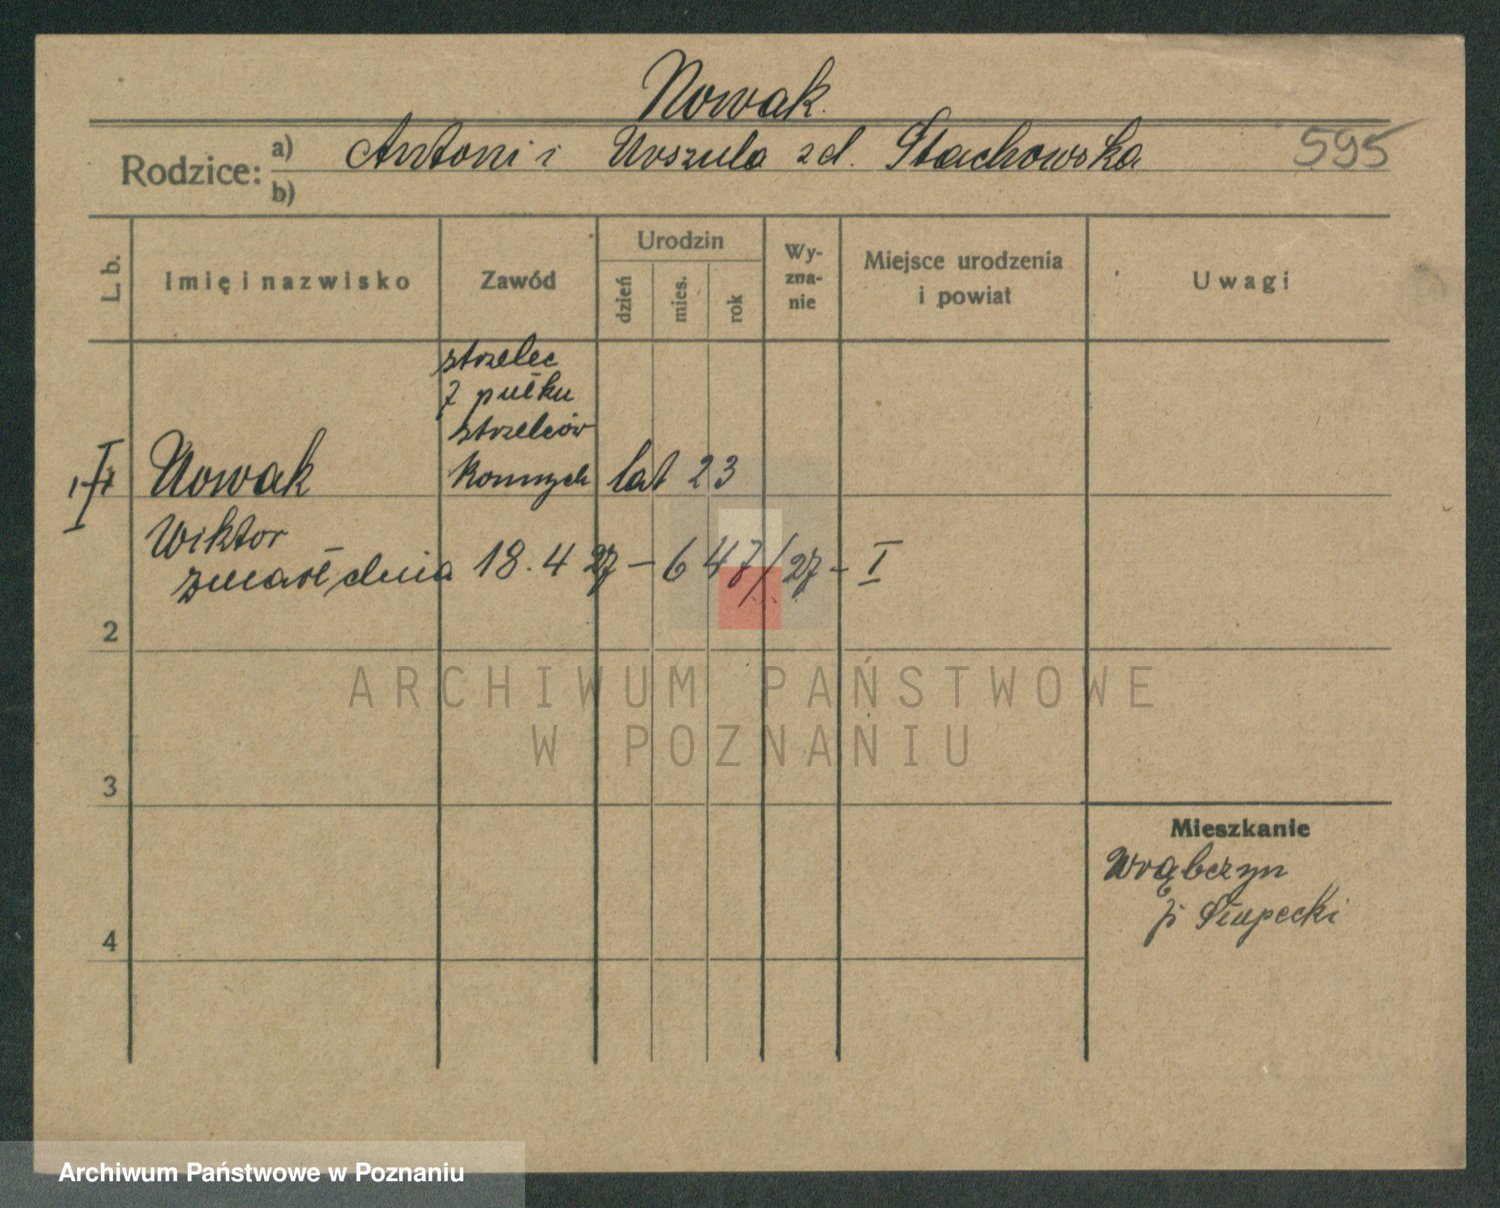 Nowak
Rodzice: a) Antoni i Urszula zd. Stachowska 595
b)
L. b. Imię i nazwisko Zawód Urodzin dzień mies. rok Wy-zna-nie Miejsce urodzenia i powiat Uwagi
strzelec
7 pułku
strzelców
I Nowak konnych lat 23
Wiktor
zmarł dnia 18.4 27 – 647/27 – I
2
ARCHIWUM PAŃSTWOWE
W POZNANIU
3
Mieszkanie
Wrąbczyn
p. Słupecki
4
Archiwum Państwowe w Poznaniu